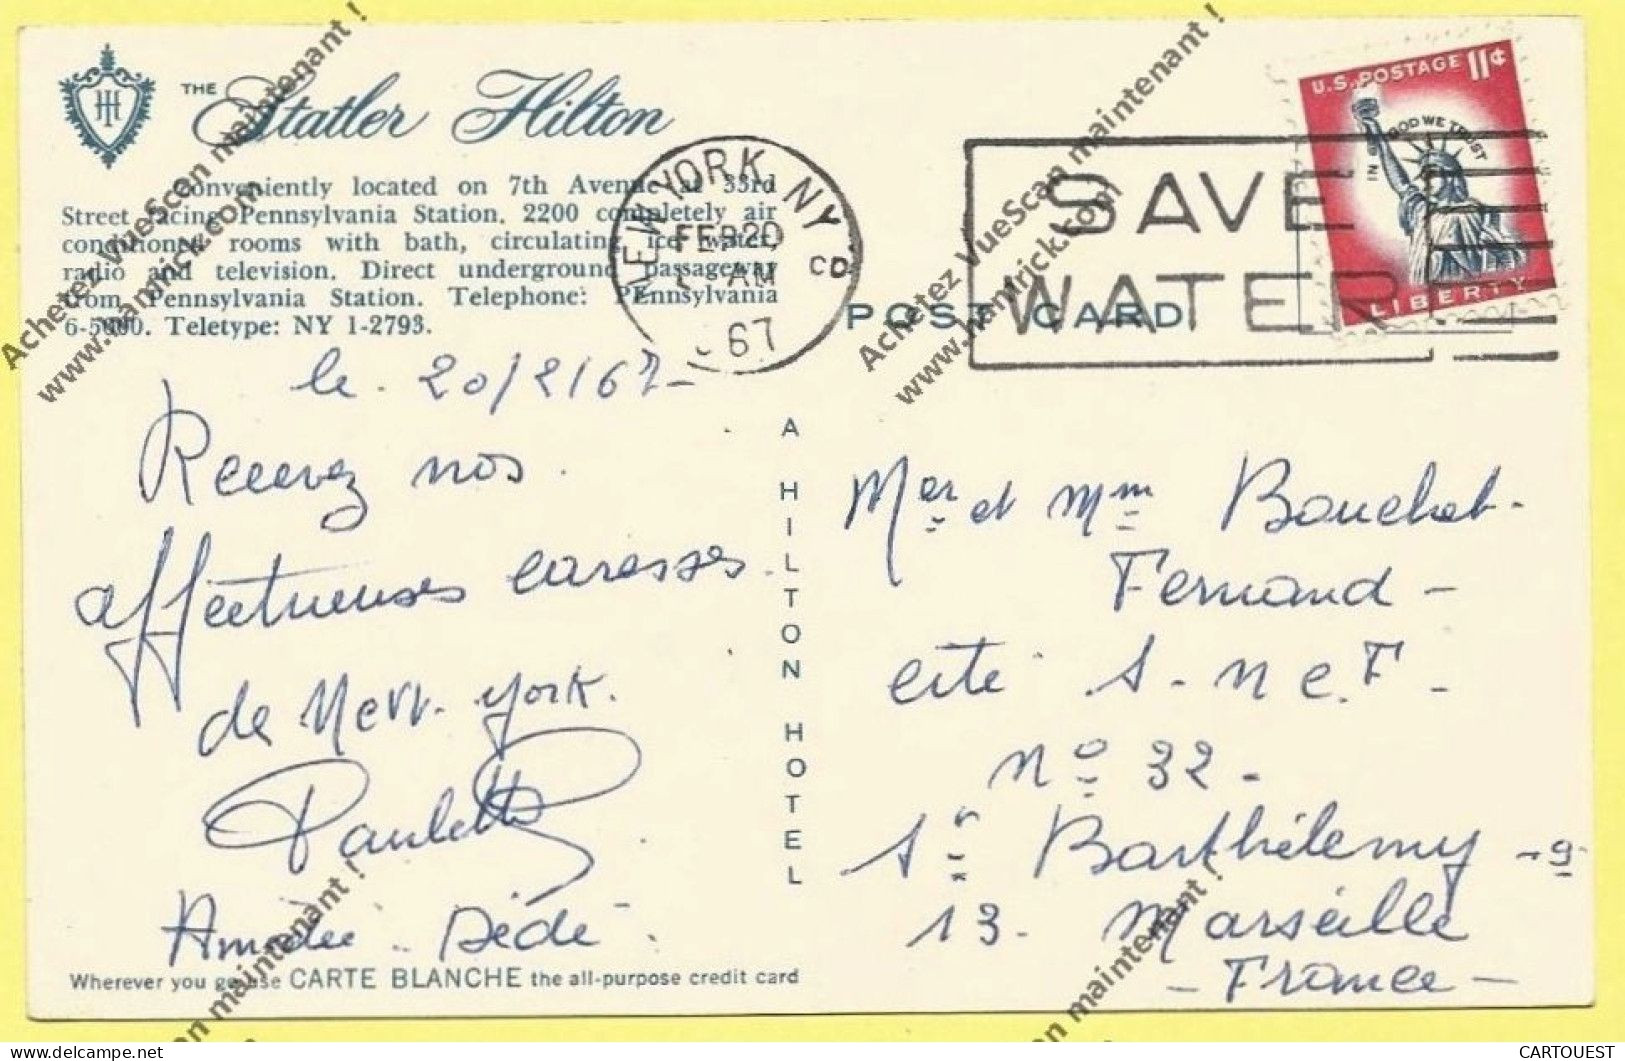 THE Statler Hilton
Conveniently located on 7th Avenue at 33rd
Street facing Pennsylvania Station. 2200 completely air
conditioned rooms with bath, circulating ice water,
radio and television. Direct underground passageway
from Pennsylvania Station. Telephone: PEnnsylvania
6-5000. Teletype: NY 1-2793.
NEW YORK NY
FEB 20
AM
CD
67
SAVE
WATER
U.S. POSTAGE 11¢
IN GOD WE TRUST
LIBERTY
POST CARD
le. 20/2/67-
Recevez nos.
affectueuses caresses.
de New-york.
Paulette
Amédée - Dédé -
A HILTON HOTEL
Mer et Mme Bouchet-
Fernand -
cité S.N.C.F -
n° 32 -
St Barthélemy -
13 - Marseille
- France -
Wherever you go use CARTE BLANCHE the all-purpose credit card
Achetez VueScan maintenant !
www.hamrick.com
Achetez VueScan maintenant !
www.hamrick.com
maintenant !
maintenant !
CARTOUEST